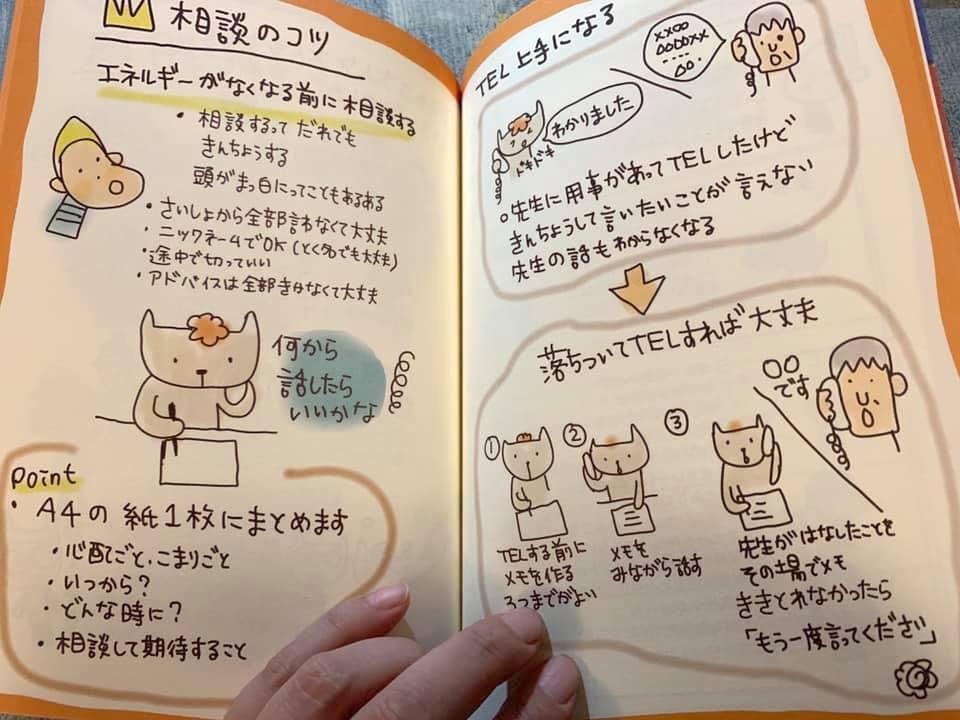 相談のコツ
エネルギーがなくなる前に相談する
・相談するって だれでも
きんちょうする
頭がまっ白にってこともあるある
・さいしょから全部話わなくて大丈夫
・ニックネームでOK(とく名でも大丈夫)
・途中で切っていい
・アドバイスは全部きかなくて大丈夫
何から
話したら
いいかな
Point
・A4の紙1枚にまとめます
・心配ごと.こまりごと
・いつから?
・どんな時に?
・相談して期待すること
TEL上手になる
××○○
△○□○××
----
△○.
わかりました
ドキドキ
○先生に用事があってTELしたけど
きんちょうして言いたいことが言えない
先生の話もわからなくなる
落ちついてTELすれば大丈夫
○○
です
①
TELする前に
メモを作る
3つまでがよい
②
メモを
みながら話す
③
先生がはなしたことを
その場でメモ
ききとれなかったら
「もう一度言ってください」